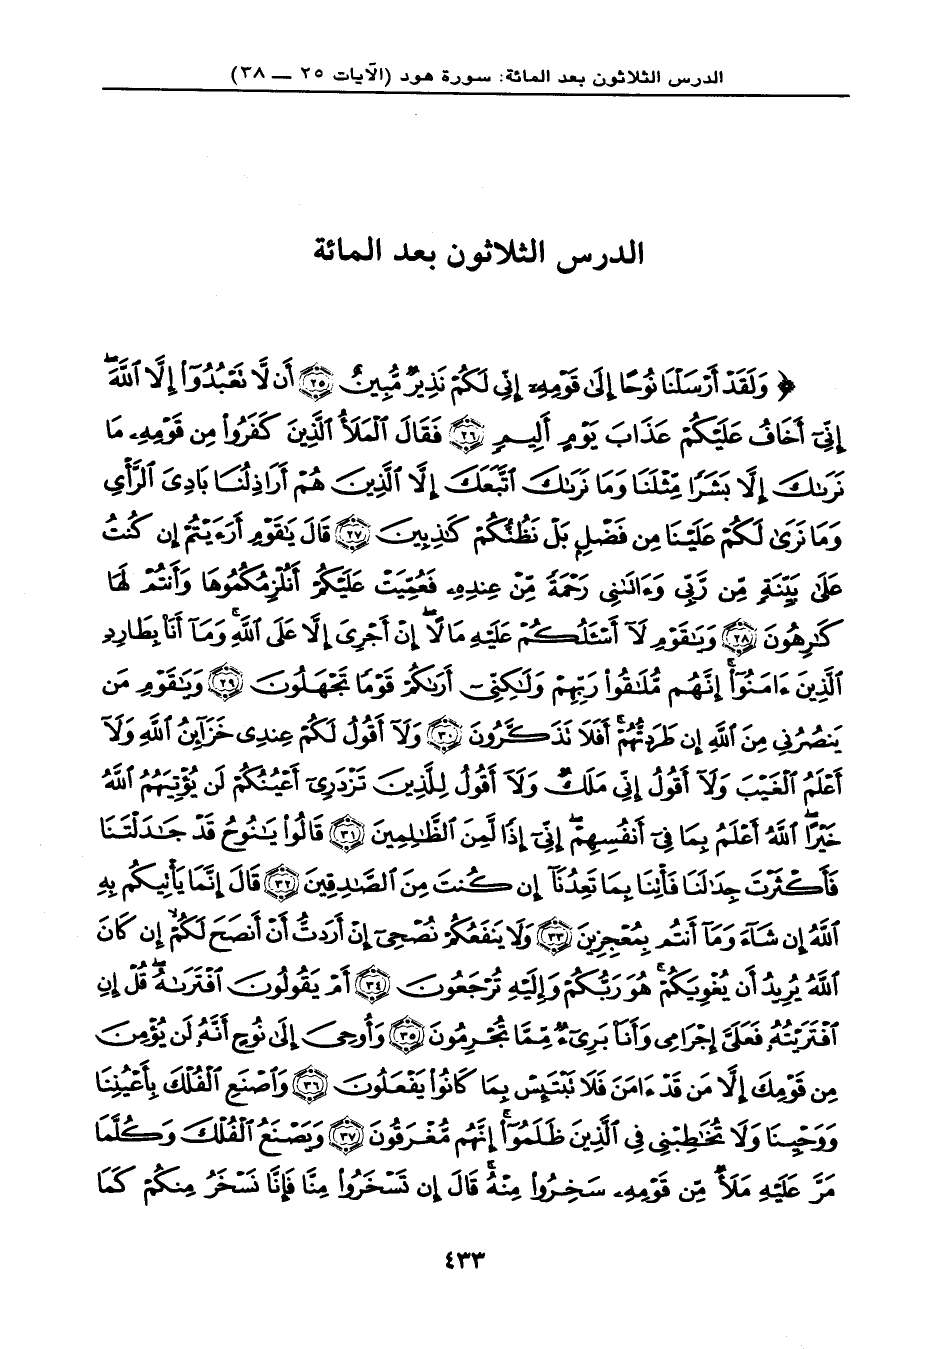 الدرس الثلاثون بعد المائة: سورة هود (الآيات ٢٥ — ٣٨)
الدرس الثلاثون بعد المائة
﴿ وَلَقَدْ أَرْسَلْنَا نُوحًا إِلَىٰ قَوْمِهِۦٓ إِنِّى لَكُمْ نَذِيرٌ مُّبِينٌ ٢٥ أَن لَّا تَعْبُدُوٓا۟ إِلَّا ٱللَّهَ ۖ
إِنِّىٓ أَخَافُ عَلَيْكُمْ عَذَابَ يَوْمٍ أَلِيمٍ ٢٦ فَقَالَ ٱلْمَلَأُ ٱلَّذِينَ كَفَرُوا۟ مِن قَوْمِهِۦ مَا
نَرَىٰكَ إِلَّا بَشَرًا مِّثْلَنَا وَمَا نَرَىٰكَ ٱتَّبَعَكَ إِلَّا ٱلَّذِينَ هُمْ أَرَاذِلُنَا بَادِىَ ٱلرَّأْىِ
وَمَا نَرَىٰ لَكُمْ عَلَيْنَا مِن فَضْلٍۭ بَلْ نَظُنُّكُمْ كَٰذِبِينَ ٢٧ قَالَ يَٰقَوْمِ أَرَءَيْتُمْ إِن كُنتُ
عَلَىٰ بَيِّنَةٍ مِّن رَّبِّى وَءَاتَىٰنِى رَحْمَةً مِّنْ عِندِهِۦ فَعُمِّيَتْ عَلَيْكُمْ أَنُلْزِمُكُمُوهَا وَأَنتُمْ لَهَا
كَٰرِهُونَ ٢٨ وَيَٰقَوْمِ لَآ أَسْـَٔلُكُمْ عَلَيْهِ مَالًا ۖ إِنْ أَجْرِىَ إِلَّا عَلَى ٱللَّهِ ۚ وَمَآ أَنَا۠ بِطَارِدِ
ٱلَّذِينَ ءَامَنُوٓا۟ ۚ إِنَّهُم مُّلَٰقُوا۟ رَبِّهِمْ وَلَٰكِنِّىٓ أَرَىٰكُمْ قَوْمًا تَجْهَلُونَ ٢٩ وَيَٰقَوْمِ مَن
يَنصُرُنِى مِنَ ٱللَّهِ إِن طَرَدتُّهُمْ ۚ أَفَلَا تَذَكَّرُونَ ٣٠ وَلَآ أَقُولُ لَكُمْ عِندِى خَزَآئِنُ ٱللَّهِ وَلَآ
أَعْلَمُ ٱلْغَيْبَ وَلَآ أَقُولُ إِنِّى مَلَكٌ وَلَآ أَقُولُ لِلَّذِينَ تَزْدَرِىٓ أَعْيُنُكُمْ لَن يُؤْتِيَهُمُ ٱللَّهُ
خَيْرًا ۖ ٱللَّهُ أَعْلَمُ بِمَا فِىٓ أَنفُسِهِمْ ۖ إِنِّىٓ إِذًا لَّمِنَ ٱلظَّٰلِمِينَ ٣١ قَالُوا۟ يَٰنُوحُ قَدْ جَٰدَلْتَنَا
فَأَكْثَرْتَ جِدَٰلَنَا فَأْتِنَا بِمَا تَعِدُنَآ إِن كُنتَ مِنَ ٱلصَّٰدِقِينَ ٣٢ قَالَ إِنَّمَا يَأْتِيكُم بِهِ
ٱللَّهُ إِن شَآءَ وَمَآ أَنتُم بِمُعْجِزِينَ ٣٣ وَلَا يَنفَعُكُمْ نُصْحِىٓ إِنْ أَرَدتُّ أَنْ أَنصَحَ لَكُمْ إِن كَانَ
ٱللَّهُ يُرِيدُ أَن يُغْوِيَكُمْ ۚ هُوَ رَبُّكُمْ وَإِلَيْهِ تُرْجَعُونَ ٣٤ أَمْ يَقُولُونَ ٱفْتَرَىٰهُ ۖ قُلْ إِنِ
ٱفْتَرَيْتُهُۥ فَعَلَىَّ إِجْرَامِى وَأَنَا۠ بَرِىٓءٌ مِّمَّا تُجْرِمُونَ ٣٥ وَأُوحِىَ إِلَىٰ نُوحٍ أَنَّهُۥ لَن يُؤْمِنَ
مِن قَوْمِكَ إِلَّا مَن قَدْ ءَامَنَ فَلَا تَبْتَئِسْ بِمَا كَانُوا۟ يَفْعَلُونَ ٣٦ وَٱصْنَعِ ٱلْفُلْكَ بِأَعْيُنِنَا
وَوَحْيِنَا وَلَا تُخَٰطِبْنِى فِى ٱلَّذِينَ ظَلَمُوٓا۟ ۚ إِنَّهُم مُّغْرَقُونَ ٣٧ وَيَصْنَعُ ٱلْفُلْكَ وَكُلَّمَا
مَرَّ عَلَيْهِ مَلَأٌ مِّن قَوْمِهِۦ سَخِرُوا۟ مِنْهُ ۚ قَالَ إِن تَسْخَرُوا۟ مِنَّا فَإِنَّا نَسْخَرُ مِنكُمْ كَمَا
٤٣٣